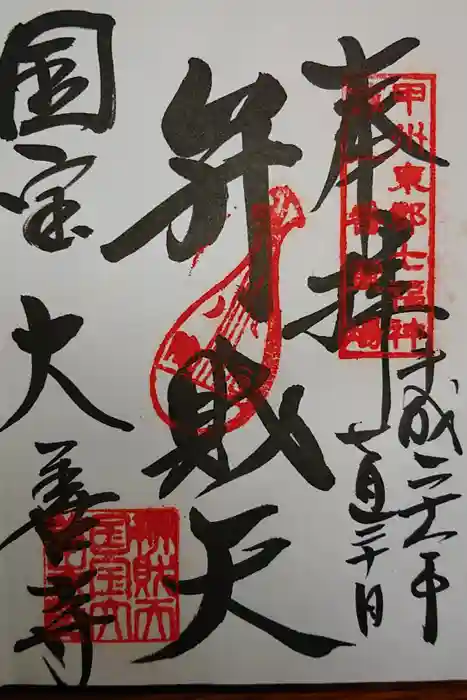 奉拝
甲州東郡七福神
平成二十六年
七月三十日
弁財天
国宝
大善寺